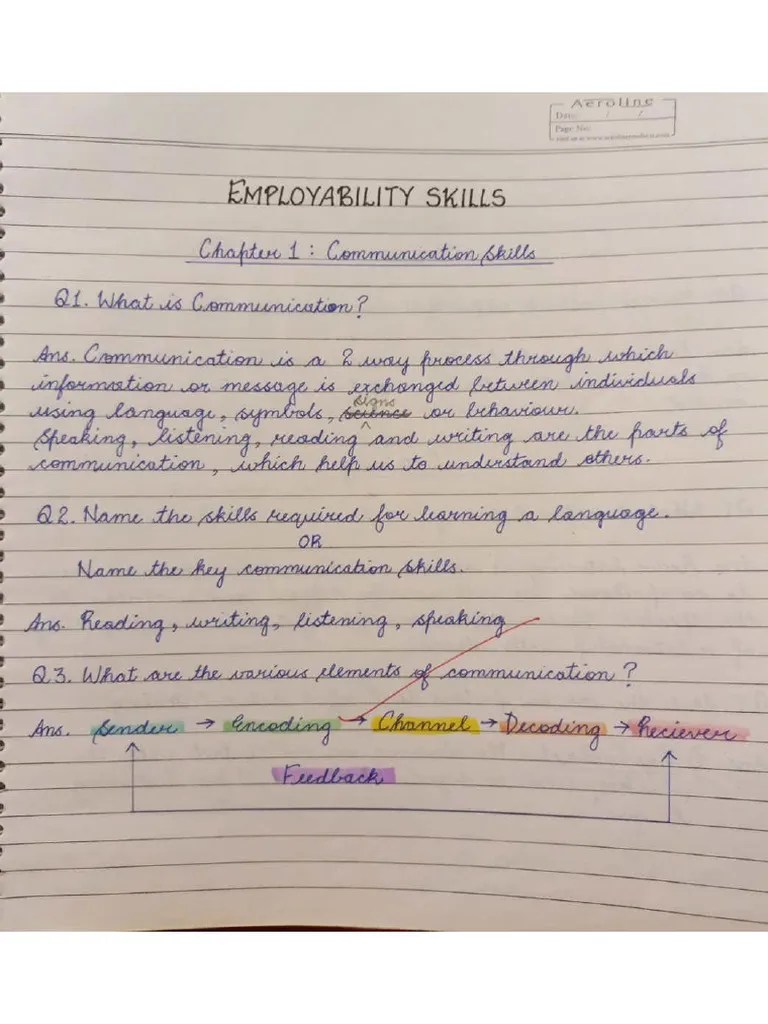 Aeroline
Date: / /
Page No:
EMPLOYABILITY SKILLS
Chapter 1 : Communication Skills
Q1. What is Communication?
Ans. Communication is a 2 way process through which
information or message is exchanged between individuals
signs
using language, symbols, science or behaviour.
Speaking, listening, reading ^ and writing are the parts of
communication, which help us to understand others.
Q2. Name the skills required for learning a language.
OR
Name the key communication skills.
Ans. Reading, writing, listening, speaking
Q3. What are the various elements of communication?
Ans. Sender → Encoding → Channel → Decoding → Reciever
Feedback